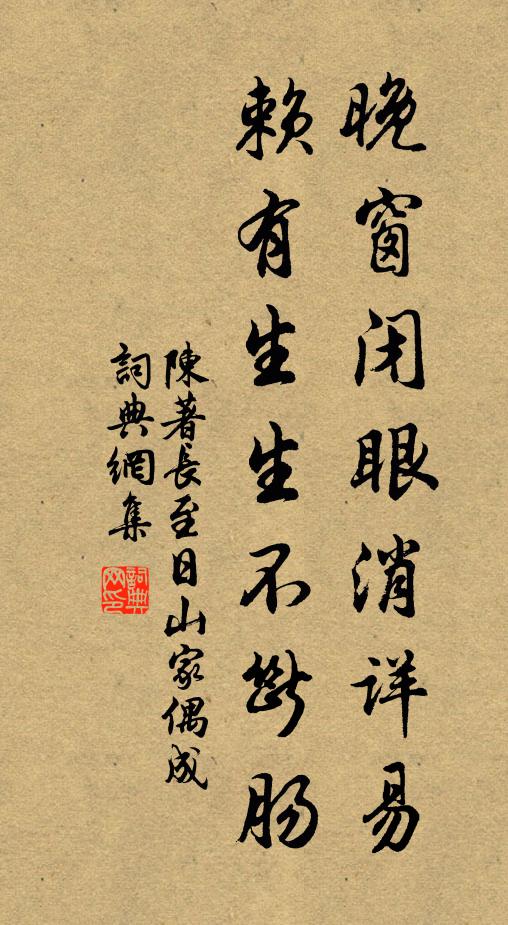 晚窗闭眼消详易
赖有生生不断肠
陳著長至日山家偶成
詞典網集
詞典网印